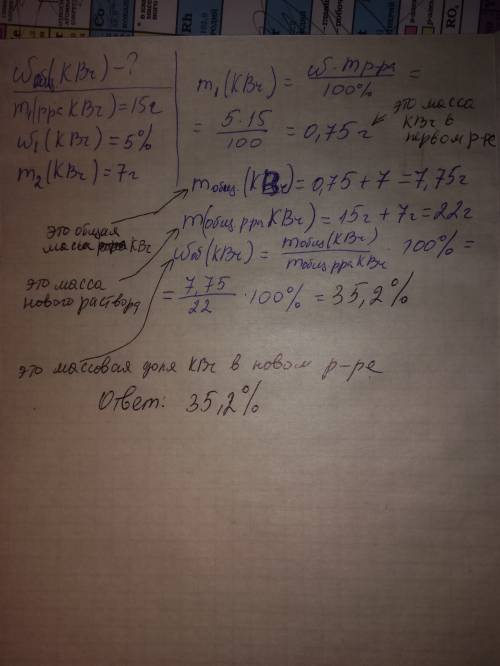 Rh
Co
RO,
ωобщ(KBr) – ?
m1(рра KBr) = 15г
ω1(KBr) = 5%
m2(KBr) = 7г
m1(KBr) = ω · m р-ра / 100% =
= 5 · 15 / 100 = 0,75г
это масса
KBr в
первом р-ре
mобщ.(KBr) = 0,75 + 7 = 7,75г
это общая
масса KBr
m(общ рра KBr) = 15г + 7г = 22г
это масса
нового раствора
ωоб(KBr) = mобщ(KBr) / mобщ рра KBr · 100% =
= 7,75 / 22 · 100% = 35,2%
это массовая доля KBr в новом р-ре
Ответ: 35,2%